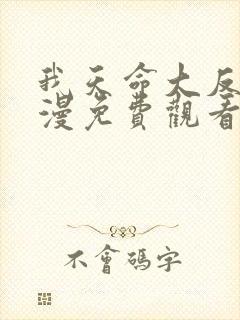 我天命大反
漫免費觀看
不會碼字